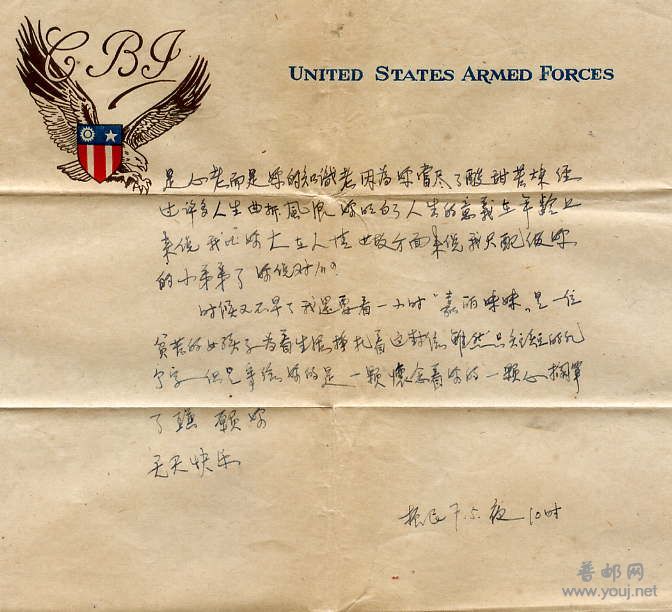 CBI
UNITED STATES ARMED FORCES
是心老而是妳的知識老因為妳嘗尽了酸甜苦辣 经
过许多人生曲折風浪 妳明白了人生的意義在年齡上
来说我比妳大在人情世故方面来说我只配做妳
的小弟弟了妳说对吗?
时候又不早了我還要看一小时“嘉丽妹妹”是一位
貧苦的女孩子为着生活掙扎着这封信虽然只是短短的几
个字 但是 寄给妳的是一颗懷念着妳的一颗心 擱筆
了 願妳
天天快乐
振民 7.5.夜 10时
普邮网
www.youj.net